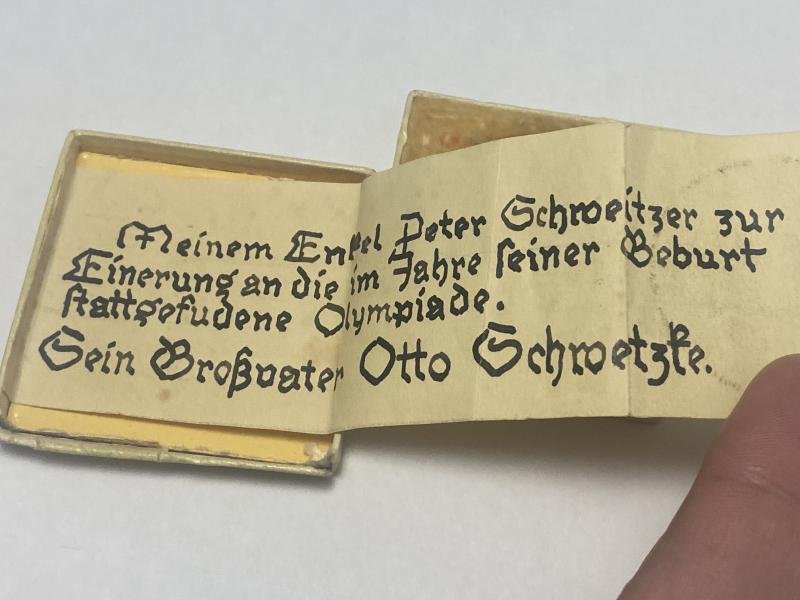 Meinem Enkel Peter Schweitzer zur
Einerung an die im Jahre seiner Geburt
stattgefudene Olympiade.
Sein Großvater Otto Schwetzke.